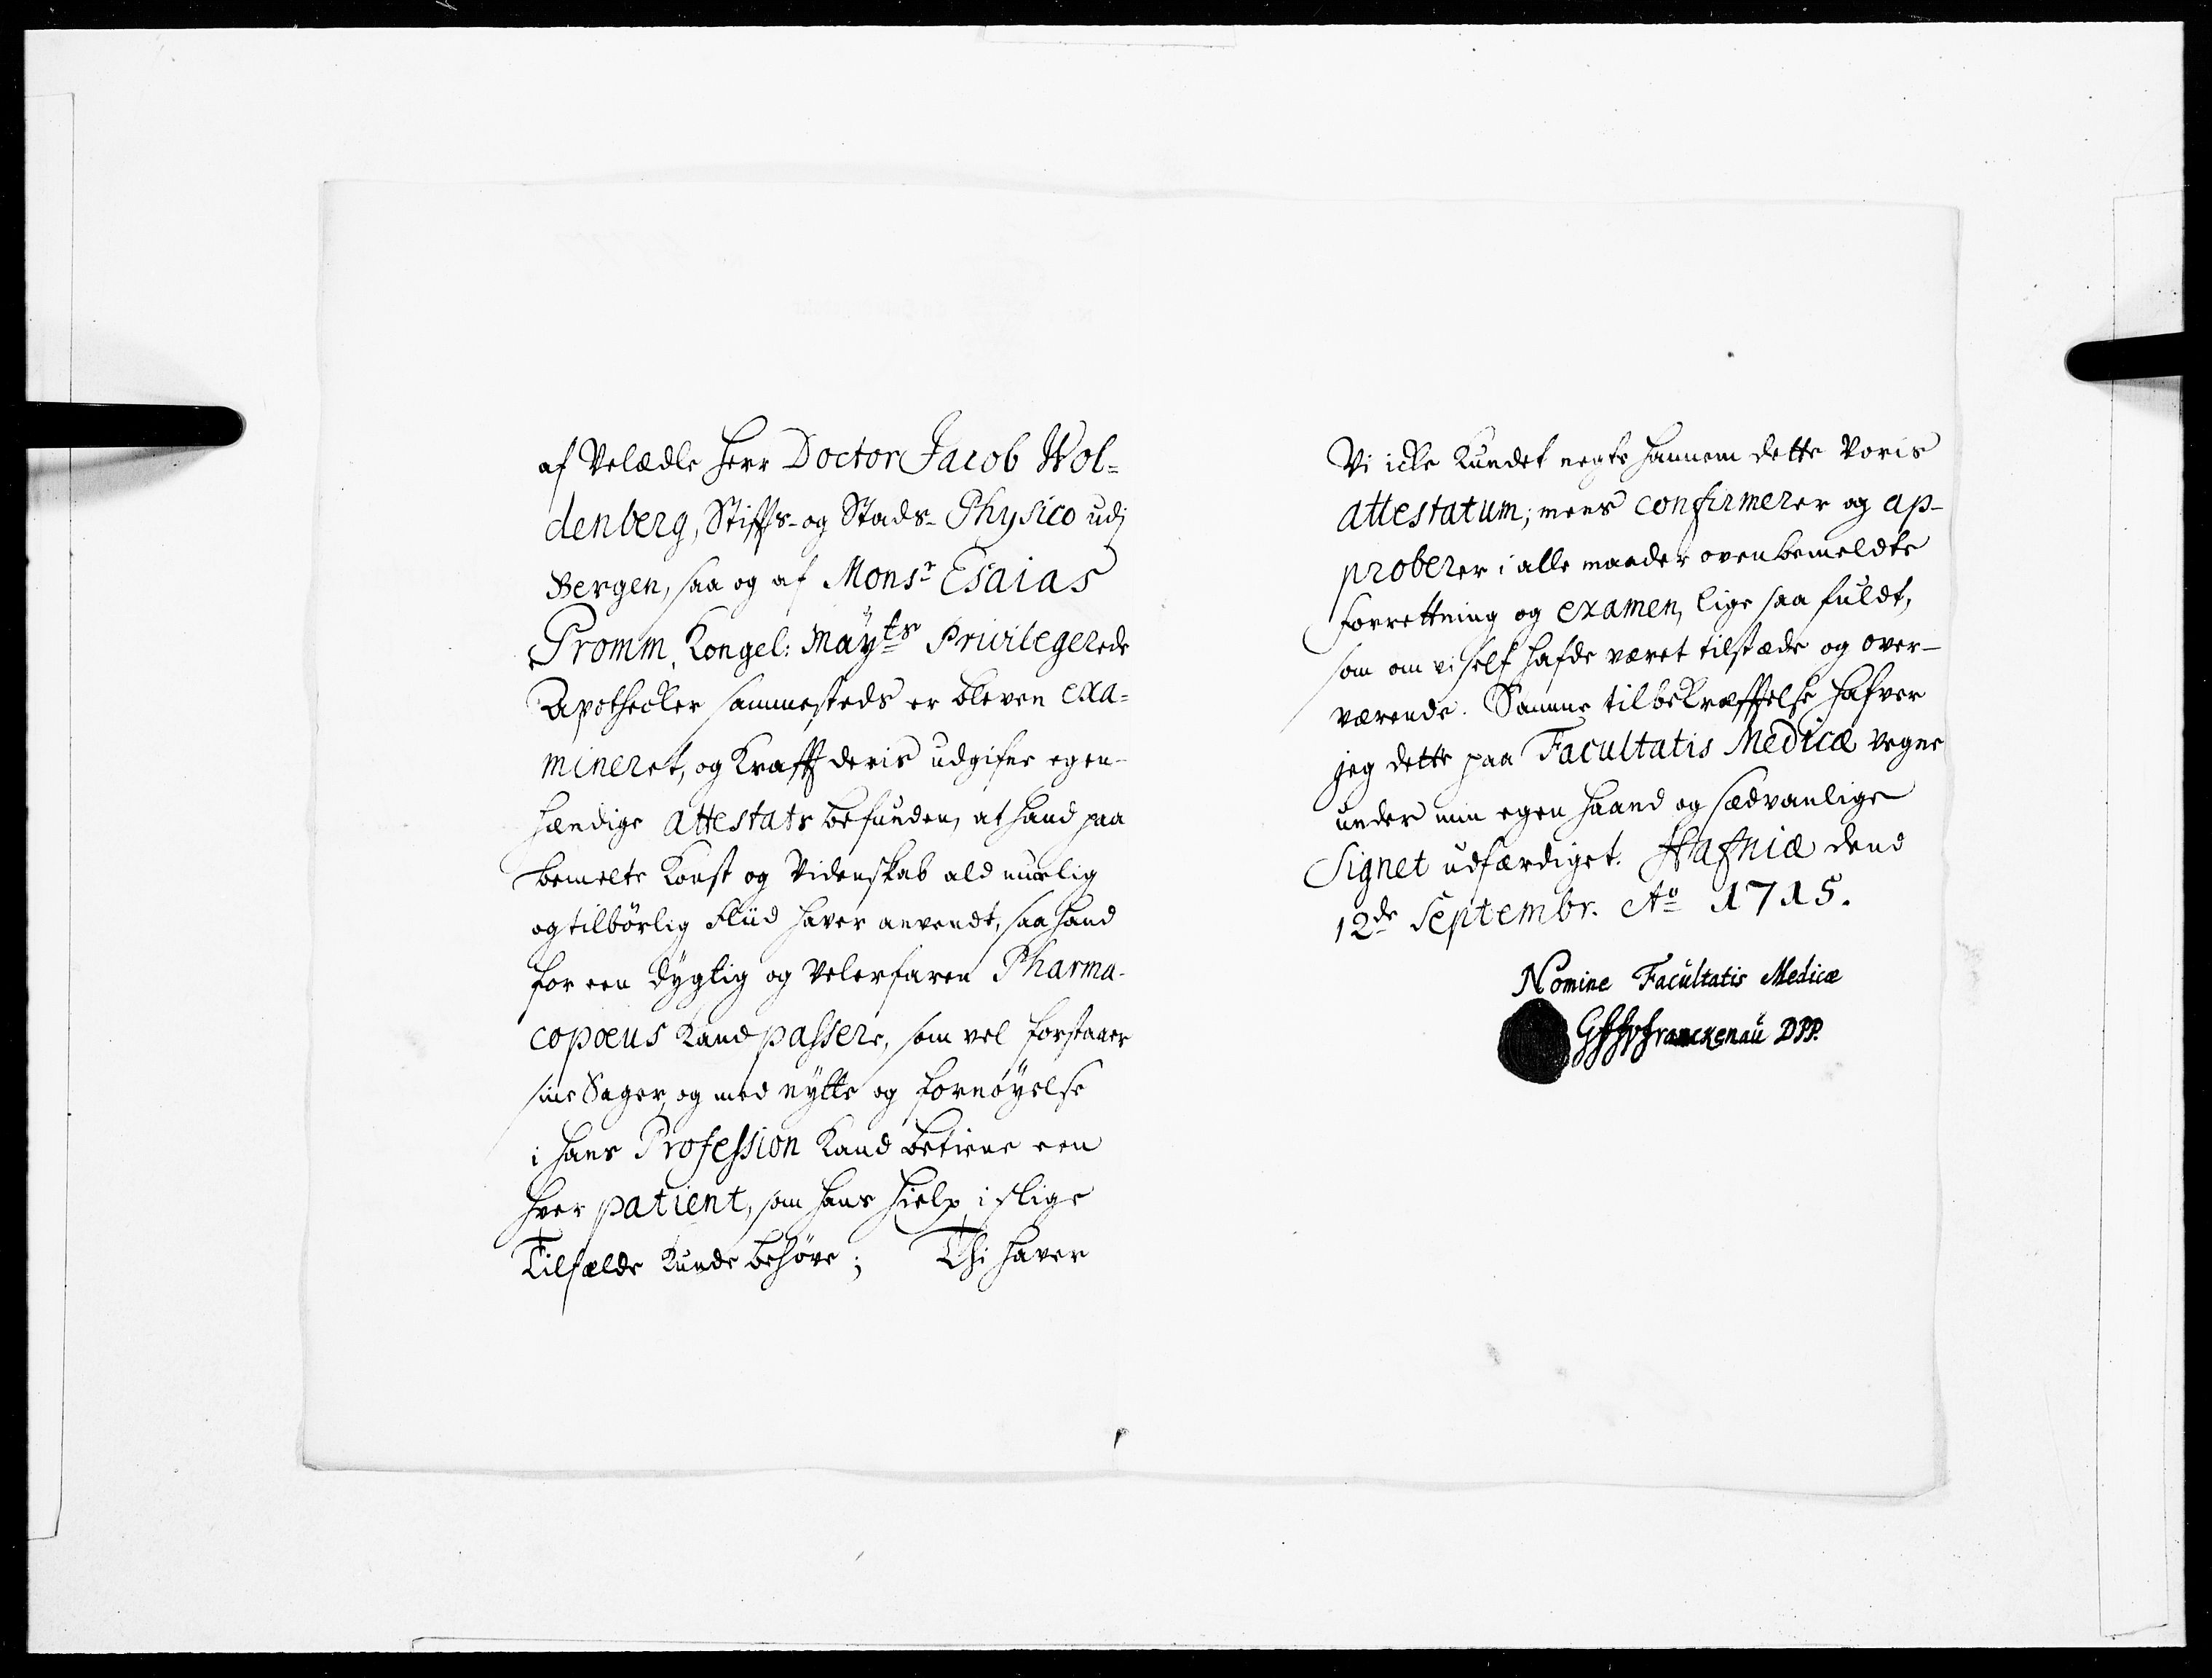 af Velædle Herr Doctor Jacob Wol-
denberg, Stiffts- og Stads-Physico udj
Bergen, saa og af Monsr Esaias
Promm, Kongel: Mayts Privilegerede
Apothecker sammesteds er bleven exa-
mineret, og Krafft deris udgifne egen-
hændige Attestats befunden, at hand paa
bemelte Konst og Videnskab ald muelig
og tilbörlig Fliid haver anvendt, saa hand
for een dygtig og Velerfaren Pharma-
copœus Kand passere, som vel forstaaer
sine Sager, og med nytte og fornöyelse
i hans Profession Kand betiene een
hver patient, som hans Hielp i slige
Tilfælde Kunde behöve; Thi haver
Vi icke Kundet negte hannem dette Voris
Attestatum; mens confirmerer og ap-
proberer i alle maader ovenbemeldte
forrettning og examen, lige saa fuldt,
som om vi self hafde været tilstæde og over-
værende. Samme til bekræfftelse hafver
jeg dette paa Facultatis Medicæ Vegne
under min egen Haand og sædvanlige
Signet udfærdiget. Hafniæ dend
12de Septembr. Ao 1715.
Nomine Facultatis Medicæ
Franckenau DPP.